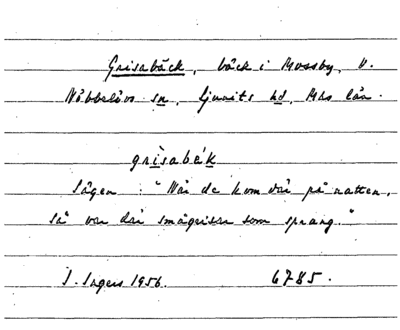 Grisabäck, bäck i Mossby, V.
Nöbbelövs sn, Ljunits hd, Mhs län.
grìsabék
Sägen: "När de kom där på natten,
så var där smågrisar som sprang."
I. Ingers 1956. 6785.